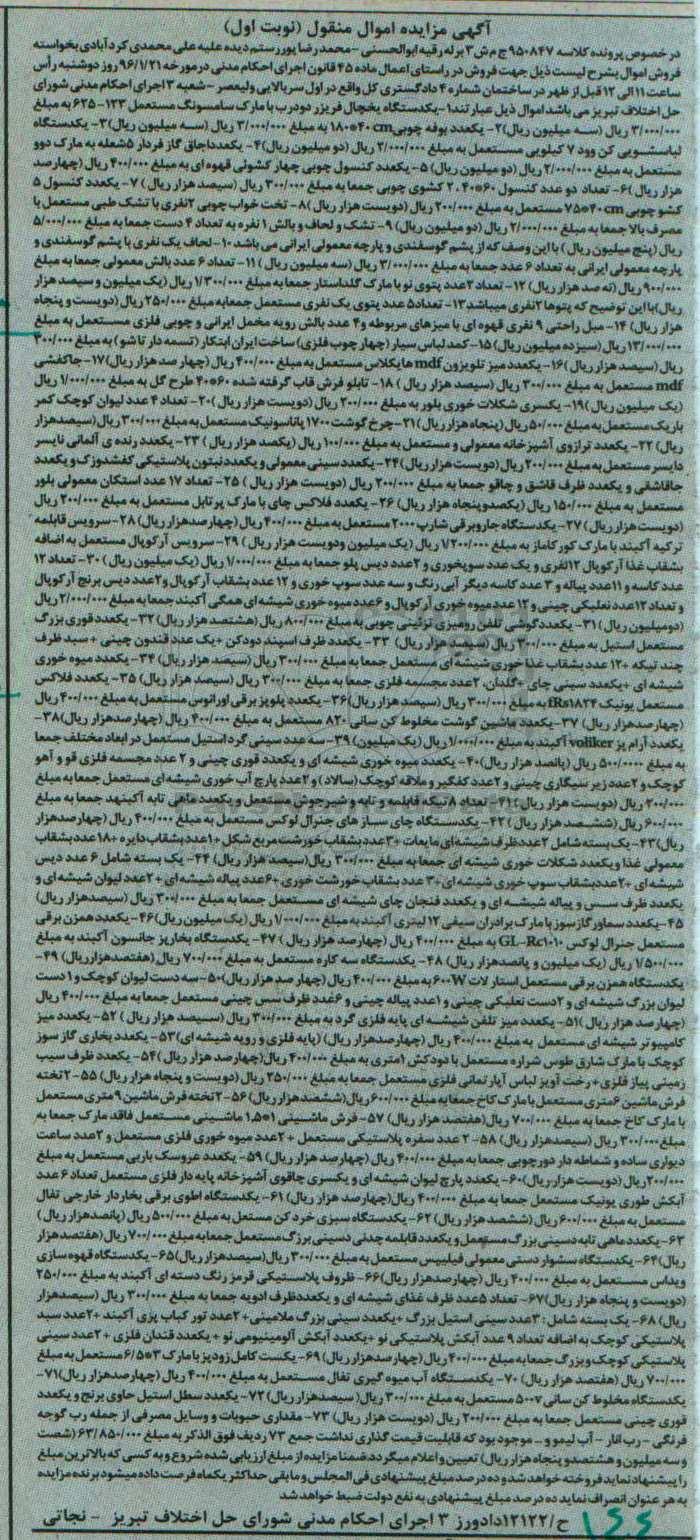 آگهی مزایده اموال منقول (نوبت اول)
در خصوص پرونده کلاسه ۹۵۰۸۴۷ ج م ش ۳ برله رقیه ابوالحسنی - محمدرضا پور رستم دیده علیه علی محمدی کردآبادی بخواسته
فروش اموال بشرح لیست ذیل جهت فروش در راستای اعمال ماده ۴۵ قانون اجرای احکام مدنی در مورخه ۹۶/۱/۲۱ روز دوشنبه رأس
ساعت ۱۱ الی ۱۲ قبل از ظهر در ساختمان شماره ۴ دادگستری کل واقع در اول سربالایی ولیعصر - شعبه ۳ اجرای احکام مدنی شورای
حل اختلاف تبریز می باشد اموال ذیل عبارتند ۱- یکدستگاه یخچال فریزر دودرب با مارک سامسونگ مستعمل ۱۲۳-۶۲۵ به مبلغ
۳/۰۰۰/۰۰۰ ریال (سه میلیون ریال) ۲- یکعدد بوفه چوبی ۱۸۰*۴۰ cm به مبلغ ۳/۰۰۰/۰۰۰ ریال (سه میلیون ریال) ۳- یکدستگاه
لباسشویی کن وود ۷ کیلویی مستعمل به مبلغ ۲/۰۰۰/۰۰۰ ریال (دو میلیون ریال) ۴- یکعدد اجاق گاز فردار ۵ شعله به مارک دوو
مستعمل به مبلغ ۲/۰۰۰/۰۰۰ ریال (دو میلیون ریال) ۵- یکعدد کنسول چوبی چهار کشوئی قهوه ای به مبلغ ۴۰۰/۰۰۰ ریال (چهارصد
هزار ریال) ۶- تعداد دو عدد کنسول ۶۰*۴۰ ، ۲ کشوی چوبی جمعا به مبلغ ۳۰۰/۰۰۰ ریال (سیصد هزار ریال) ۷- یکعدد کنسول ۵
کشو چوبی ۷۵*۴۰ cm مستعمل به مبلغ ۲۰۰/۰۰۰ ریال (دویست هزار ریال) ۸- تخت خواب چوبی ۲ نفری با تشک طبی مستعمل با
مصرف بالا جمعا به مبلغ ۲/۰۰۰/۰۰۰ ریال (دو میلیون ریال) ۹- تشک و لحاف و بالش ۱ نفره به تعداد ۴ دست جمعا به مبلغ ۵/۰۰۰/۰۰۰
ریال (پنج میلیون ریال) با این وصف که از پشم گوسفندی و پارچه معمولی ایرانی می باشد ۱۰- لحاف یک نفری با پشم گوسفندی و
پارچه معمولی ایرانی به تعداد ۶ عدد جمعا به مبلغ ۳/۰۰۰/۰۰۰ ریال (سه میلیون ریال) ۱۱- تعداد ۶ عدد بالش معمولی جمعا به مبلغ
۹۰۰/۰۰۰ ریال (نه صد هزار ریال) ۱۲- تعداد ۲ عدد پتوی نو با مارک گلداستار جمعا به مبلغ ۱/۳۰۰/۰۰۰ ریال (یک میلیون و سیصد هزار
ریال) با این توضیح که پتوها ۲ نفری میباشد ۱۳- تعداد ۵ عدد پتوی یک نفری مستعمل جمعا به مبلغ ۲۵۰/۰۰۰ ریال (دویست و پنجاه
هزار ریال) ۱۴- مبل راحتی ۹ نفری قهوه ای با میزهای مربوطه و ۴ عدد بالش رویه مخمل ایرانی و چوبی فلزی مستعمل به مبلغ
۱۳/۰۰۰/۰۰۰ ریال (سیزده میلیون ریال) ۱۵- کمد لباس سیار (چهار چوب فلزی) ساخت ایران ابتکار (تسمه دار تاشو) به مبلغ ۳۰۰/۰۰۰
ریال (سیصد هزار ریال) ۱۶- یکعدد میز تلویزون mdf هایکلاس مستعمل به مبلغ ۴۰۰/۰۰۰ ریال (چهار صد هزار ریال) ۱۷- جاکفشی
mdf مستعمل به مبلغ ۳۰۰/۰۰۰ ریال (سیصد هزار ریال) ۱۸- تابلو فرش قاب گرفته شده ۶۰*۴۰ طرح گل به مبلغ ۱/۰۰۰/۰۰۰ ریال
(یک میلیون ریال) ۱۹- یکسری شکلات خوری بلور به مبلغ ۲۰۰/۰۰۰ ریال (دویست هزار ریال) ۲۰- تعداد ۴ عدد لیوان کوچک کمر
باریک مستعمل به مبلغ ۵۰/۰۰۰ ریال (پنجاه هزار ریال) ۲۱- چرخ گوشت ۱۷۰۰ پاناسونیک مستعمل به مبلغ ۳۰۰/۰۰۰ ریال (سیصد هزار
ریال) ۲۲- یکعدد ترازوی آشپزخانه معمولی و مستعمل به مبلغ ۱۰۰/۰۰۰ ریال (یکصد هزار ریال) ۲۳- یکعدد رنده ی آلمانی نایسر
دایسر مستعمل به مبلغ ۲۰۰/۰۰۰ ریال (دویست هزار ریال) ۲۴- یکعدد سینی معمولی و یکعدد نیتون پلاستیکی کفشدوزک و یکعدد
جاقاشقی و یکعدد ظرف قاشق و چاقو جمعا به مبلغ ۲۰۰/۰۰۰ ریال (دویست هزار ریال) ۲۵- تعداد ۱۷ عدد استکان معمولی بلور
مستعمل به مبلغ ۱۵۰/۰۰۰ ریال (یکصدو پنجاه هزار ریال) ۲۶- یکعدد فلاکس چای با مارک پرتابل مستعمل به مبلغ ۲۰۰/۰۰۰ ریال
(دویست هزار ریال) ۲۷- یکدستگاه جاروبرقی شارپ ۲۰۰۰ مستعمل به مبلغ ۴۰۰/۰۰۰ ریال (چهارصد هزار ریال) ۲۸- سرویس قابلمه
ترکیه آکبند با مارک کورکاماز به مبلغ ۱/۲۰۰/۰۰۰ ریال (یک میلیون ودویست هزار ریال) ۲۹- سرویس آرکوپال مستعمل به اضافه
بشقاب غذا آرکوپال ۱۲ نفری و یک عدد سوپخوری و ۲ عدد دیس پلو جمعا به مبلغ ۱/۰۰۰/۰۰۰ ریال (یک میلیون ریال) ۳۰- تعداد ۱۲
عدد کاسه و ۱۱ عدد پیاله و ۳ عدد کاسه دیگر آبی رنگ و سه عدد سوپ خوری و ۱۲ عدد بشقاب آرکوپال و ۲ عدد دیس برنج آرکوپال
و تعداد ۱۲ عدد نعلبکی چینی و ۱۲ عدد میوه خوری آرکوپال و ۶ عدد میوه خوری شیشه ای همگی آکبند جمعا به مبلغ ۲/۰۰۰/۰۰۰ ریال
(دو میلیون ریال) ۳۱- یکعدد گوشی تلفن رومیزی تزئینی چوبی به مبلغ ۸۰۰/۰۰۰ ریال (هشتصد هزار ریال) ۳۲- یکعدد قوری بزرگ
مستعمل استیل به مبلغ ۳۰۰/۰۰۰ ریال (سیصد هزار ریال) ۳۳- یکعدد ظرف اسپند دودکن + یک عدد قندون چینی + سبد ظرف
چند تیکه + ۱۲ عدد بشقاب غذاخوری شیشه ای مستعمل جمعا به مبلغ ۳۰۰/۰۰۰ ریال (سیصد هزار ریال) ۳۴- یکعدد میوه خوری
شیشه ای + یکعدد سینی چای + گلدان، ۲ عدد مجسمه فلزی جمعا به مبلغ ۳۰۰/۰۰۰ ریال (سیصد هزار ریال) ۳۵- یکعدد فلاکس
مستعمل یونیک fRs۱۸۲۴ به مبلغ ۳۰۰/۰۰۰ ریال (سیصد هزار ریال) ۳۶- یکعدد پلوپز برقی اورانوس مستعمل به مبلغ ۴۰۰/۰۰۰ ریال
(چهارصد هزار ریال) ۳۷- یکعدد ماشین گوشت مخلوط کن سانی ۸۲۰ مستعمل به مبلغ ۴۰۰/۰۰۰ ریال (چهارصد هزار ریال) ۳۸-
یکعدد آرام پز voliker آکبند به مبلغ ۱/۰۰۰/۰۰۰ ریال (یک میلیون) ۳۹- سه عدد سینی گرد استیل مستعمل در ابعاد مختلف جمعا
به مبلغ ۵۰۰/۰۰۰ ریال (پانصد هزار ریال) ۴۰- یکعدد میوه خوری شیشه ای و یکعدد قوری چینی و ۲ عدد مجسمه فلزی قو و آهو
کوچک و ۲ عدد زیر سیگاری چینی و ۲ عدد کفگیر و ملاقه کوچک (سالاد) و ۲ عدد پارچ آب خوری شیشه ای مستعمل جمعا به مبلغ
۲۰۰/۰۰۰ ریال (دویست هزار ریال) ۴۱- تعداد ۸ تیکه قابلمه و تابه و شیرجوش مستعمل و یکعدد ماهی تابه آکبنهد جمعا به مبلغ
۶۰۰/۰۰۰ ریال (ششصد هزار ریال) ۴۲- یکدستگاه چای ساز های جنرال لوکس مستعمل به مبلغ ۴۰۰/۰۰۰ ریال (چهارصد هزار
ریال) ۴۳- یک بسته شامل ۲ عدد ظرف شیشه ای مایعات + ۳ عدد بشقاب خورشت مربع شکل + ۱ عدد بشقاب دایره + ۱۸ عدد بشقاب
معمولی غذا و یکعدد شکلات خوری شیشه ای جمعا به مبلغ ۳۰۰/۰۰۰ ریال (سیصد هزار ریال) ۴۴- یک بسته شامل ۶ عدد دیس
شیشه ای + ۲ عدد بشقاب سوپ خوری شیشه ای + ۳ عدد بشقاب خورشت خوری + ۶ عدد پیاله شیشه ای + ۲ عدد لیوان شیشه ای و
یکعدد ظرف سس و پیاله شیشه ای و یکعدد فنجان چای شیشه ای مستعمل جمعا به مبلغ ۳۰۰/۰۰۰ ریال (سیصد هزار ریال)
۴۵- یکعدد سماور گاز سوز با مارک برادران سیفی ۱۲ لیتری آکبند به مبلغ ۱/۰۰۰/۰۰۰ ریال (یک میلیون ریال) ۴۶- یکعدد همزن برقی
مستعمل جنرال لوکس GL-Rc۱۰۱۰ به مبلغ ۴۰۰/۰۰۰ ریال (چهارصد هزار ریال) ۴۷- یکدستگاه بخارپز جانسون آکبند به مبلغ
۱/۵۰۰/۰۰۰ ریال (یک میلیون و پانصد هزار ریال) ۴۸- یکدستگاه سه کاره مستعمل به مبلغ ۷۰۰/۰۰۰ ریال (هفتصد هزار ریال) ۴۹-
یکدستگاه همزن برقی مستعمل استار لات ۶۰۰W به مبلغ ۴۰۰/۰۰۰ ریال (چهار صد هزار ریال) ۵۰- سه دست لیوان کوچک و ۱ دست
لیوان بزرگ شیشه ای و ۲ دست نعلبکی چینی و ۱ عدد پیاله چینی و ۶ عدد ظرف سس چینی مستعمل جمعا به مبلغ ۴۰۰/۰۰۰ ریال
(چهار صد هزار ریال) ۵۱- یکعدد میز تلفن شیشه ای پایه فلزی گرد به مبلغ ۳۰۰/۰۰۰ ریال (سیصد هزار ریال) ۵۲- یکعدد میز
کامپیوتر شیشه ای مستعمل به مبلغ ۴۰۰/۰۰۰ ریال (چهارصد هزار ریال) (پایه فلزی و رویه شیشه ای) ۵۳- یکعدد بخاری گاز سوز
کوچک با مارک شارق طوس شراره مستعمل با دودکش ۱ متری به مبلغ ۴۰۰/۰۰۰ ریال (چهار صد هزار ریال) ۵۴- یکعدد ظرف سیب
زمینی پیاز فلزی + رخت آویز لباس آپارتمانی فلزی مستعمل جمعا به مبلغ ۲۵۰/۰۰۰ ریال (دویست و پنجاه هزار ریال) ۵۵- ۲ تخته
فرش ماشین ۶ متری مستعمل با مارک کاخ جمعا به مبلغ ۶۰۰/۰۰۰ ریال (ششصد هزار ریال) ۵۶- ۲ تخته فرش ماشین ۹ متری مستعمل
با مارک کاخ جمعا به مبلغ ۷۰۰/۰۰۰ ریال (هفتصد هزار ریال) ۵۷- فرش ماشینی ۱*۱.۵ ماشینی مستعمل فاقد مارک جمعا به
مبلغ ۳۰۰/۰۰۰ ریال (سیصد هزار ریال) ۵۸- ۲ عدد سفره پلاستیکی مستعمل + ۲ عدد میوه خوری فلزی مستعمل و ۲ عدد ساعت
دیواری ساده و شماطه دار دورچوبی جمعا به مبلغ ۴۰۰/۰۰۰ ریال (چهارصد هزار ریال) ۵۹- یکعدد عروسک باربی مستعمل به مبلغ
۲۰۰/۰۰۰ ریال (دویست هزار ریال) ۶۰- یکعدد پارچ لیوان شیشه ای و یکسری چاقوی آشپزخانه پایه دار فلزی مستعمل تعداد ۶ عدد
آبکش طوری یونیک مستعمل جمعا به مبلغ ۴۰۰/۰۰۰ ریال (چهارصد هزار ریال) ۶۱- یکدستگاه اطوی برقی بخاردار خارجی تفال
مستعمل به مبلغ ۶۰۰/۰۰۰ ریال (ششصد هزار ریال) ۶۲- یکدستگاه سبزی خرد کن مستعل به مبلغ ۵۰۰/۰۰۰ ریال (پانصد هزار ریال)
۶۳- یکعدد ماهی تابه دسینی بزرگ مستعمل و یکعدد قابلمه چدنی دسینی برگ مستعمل جمعا به مبلغ ۷۰۰/۰۰۰ ریال (هفتصد هزار
ریال) ۶۴- یکدستگاه سشوار دستی معمولی فیلیپس مستعمل به مبلغ ۳۰۰/۰۰۰ ریال (سیصد هزار ریال) ۶۵- یکدستگاه قهوه سازی
ویداس مستعمل به مبلغ ۴۰۰/۰۰۰ ریال (چهارصد هزار ریال) ۶۶- ظروف پلاستیکی قرمز رنگ دسته ای آکبند به مبلغ ۲۵۰/۰۰۰
(دویست و پنجاه هزار ریال) ۶۷- تعداد ۵ عدد ظرف غذای شیشه ای و یکعدد ظرف ادویه جمعا به مبلغ ۳۰۰/۰۰۰ ریال (سیصد هزار
ریال) ۶۸- یک بسته شامل: ۳ عدد سینی استیل بزرگ + یکعدد سینی بزرگ ملامینی + ۲ عدد تور کباب پزی آکبند + ۲ عدد سبد
پلاستیکی کوچک به اضافه تعداد ۹ عدد آبکش پلاستیکی نو + یکعدد آبکش آلومینیومی نو + یکعدد قندان فلزی + ۲ عدد سینی
پلاستیکی کوچک و بزرگ جمعا به مبلغ ۴۰۰/۰۰۰ ریال (چهار صد هزار ریال) ۶۹- یکست کامل زودپز با مارک ۳*۶/۵ مستعمل به مبلغ
۷۰۰/۰۰۰ ریال (هفتصد هزار ریال) ۷۰- یکدستگاه آب میوه گیری تفال مستعمل به مبلغ ۴۰۰/۰۰۰ ریال (چهارصد هزار ریال) ۷۱-
یکدستگاه مخلوط کن سانی ۵۰۰۷ مستعمل به مبلغ ۳۰۰/۰۰۰ ریال (سیصد هزار ریال) ۷۲- یکعدد سطل استیل حاوی برنج و یکعدد
قوری چینی مستعمل جمعا به مبلغ ۲۰۰/۰۰۰ ریال (دویست هزار ریال) ۷۳- مقداری حبوبات و وسایل مصرفی از جمله رب گوجه
فرنگی - رب انار - آب لیمو و ... موجود بود که قابلیت قیمت گذاری نداشت جمع ۷۳ ردیف فوق الذکر به مبلغ ۶۳/۸۵۰/۰۰۰ (شصت
و سه میلیون و هشتصدو پنجاه هزار ریال) تعیین و اعلام میگردد ضمنا مزایده از مبلغ ارزیابی شده شروع و به کسی که بالاترین مبلغ
را پیشنهاد نماید فروخته خواهد شد و ده درصد مبلغ پیشنهادی فی المجلس و مابقی حداکثر یکماه فرصت داده میشود برنده مزایده
به هر عنوان انصراف نماید ده درصد مبلغ پیشنهادی به نفع دولت ضبط خواهد شد
ح/۱۲۱۲۲ دادورز ۳ اجرای احکام مدنی شورای حل اختلاف تبریز - نجاتی
۱۶۶